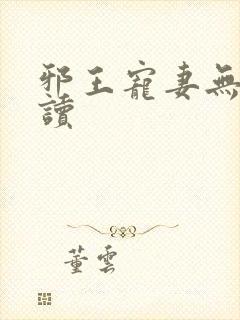 邪王寵妻無
讀
董雲